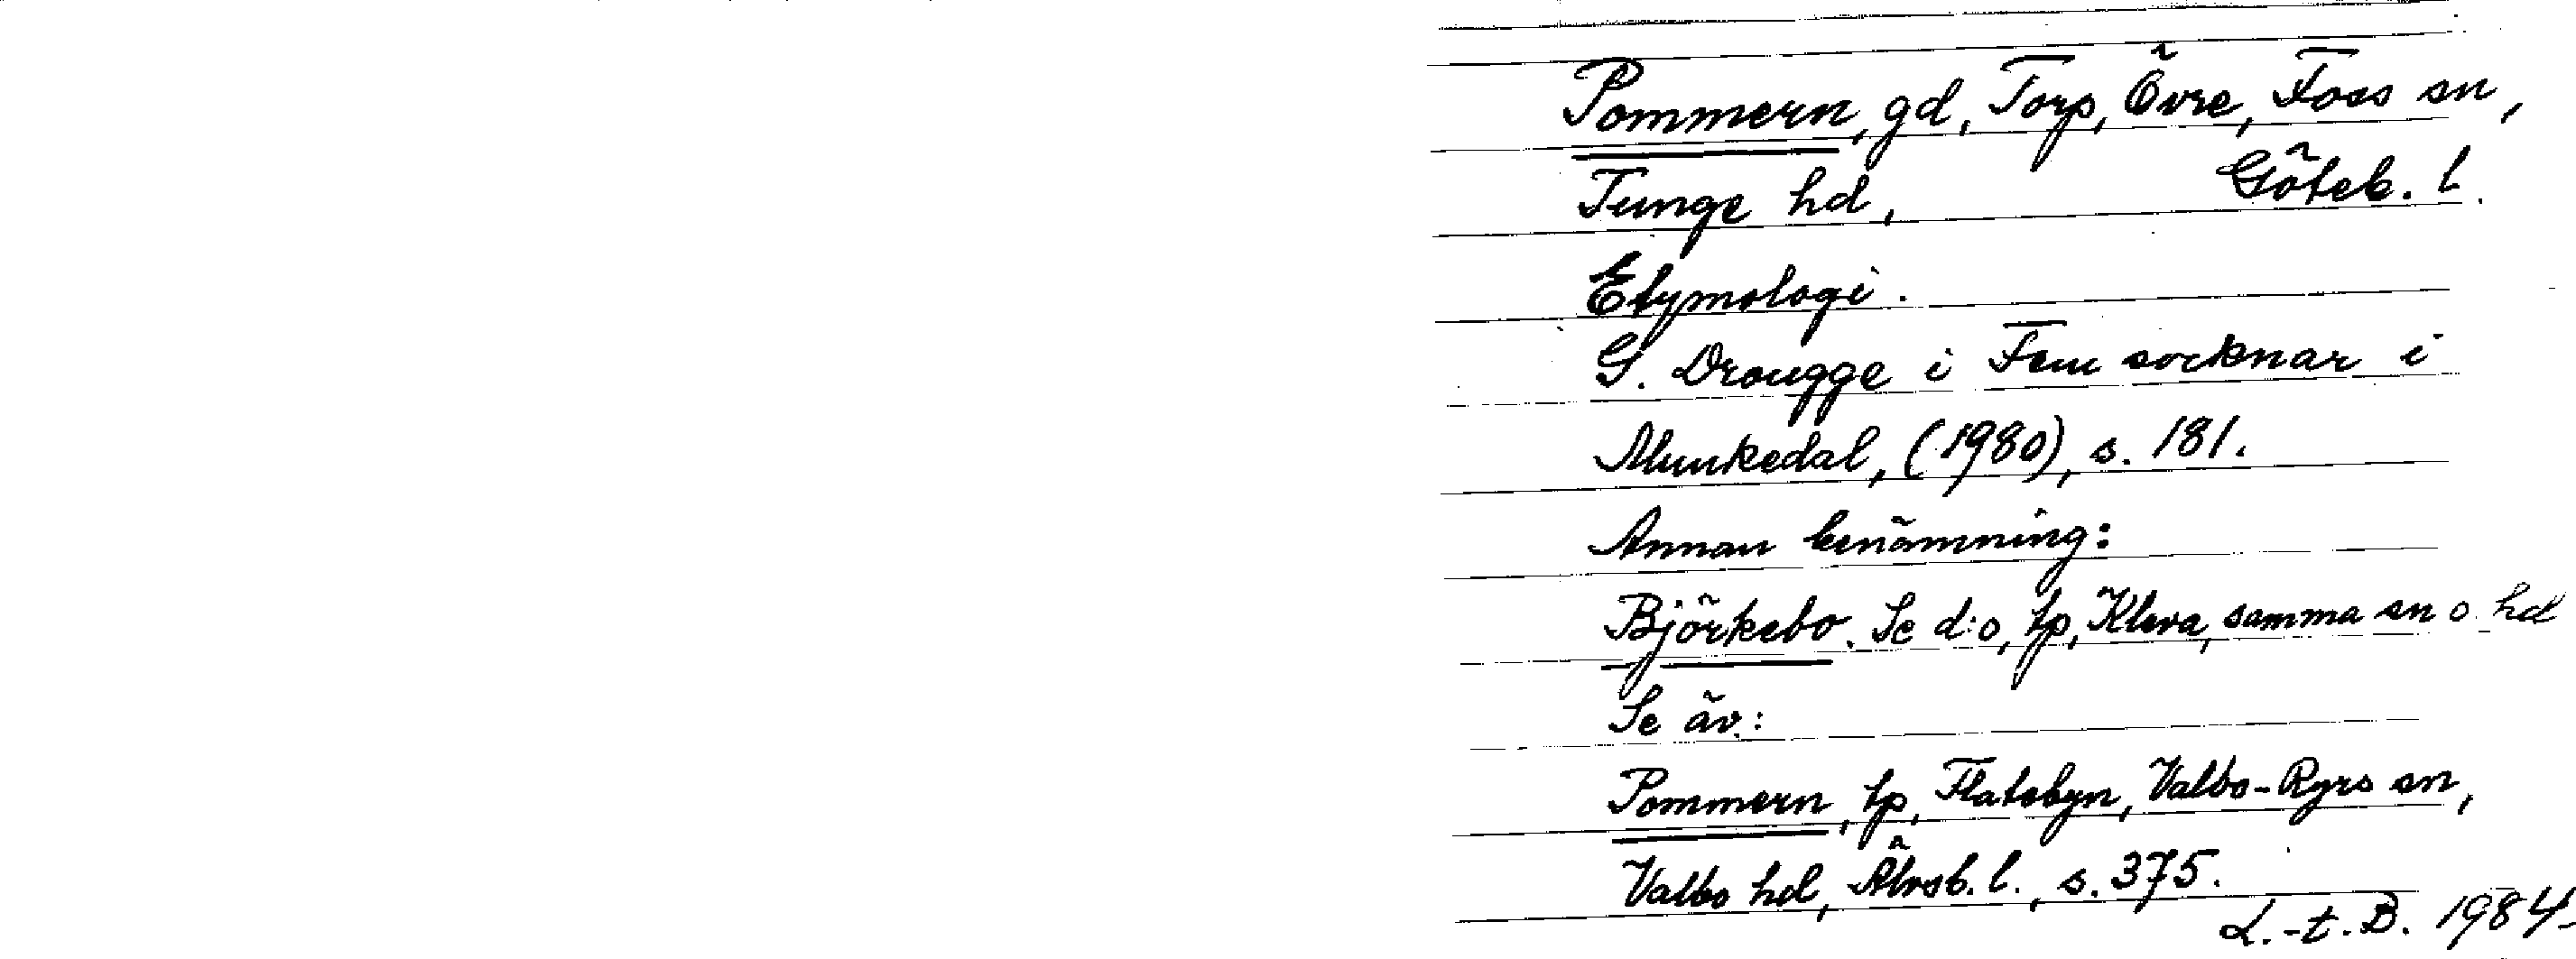 Pommern, gd, Torp, Övre, Foss sn,
Tunge hd, Göteb. l.
Etymologi.
G. Drougge i Fem socknar i
Munkedal, (1980), s. 181.
Annan benämning:
Björkebo. Se d:o, tp, Kleva, samma sn o. hd
Se äv.:
Pommern, tp, Flatebyn, Valbo-Ryrs sn,
Valbo hd, Älvsb. l., s. 375.
L.-t. B. 1984